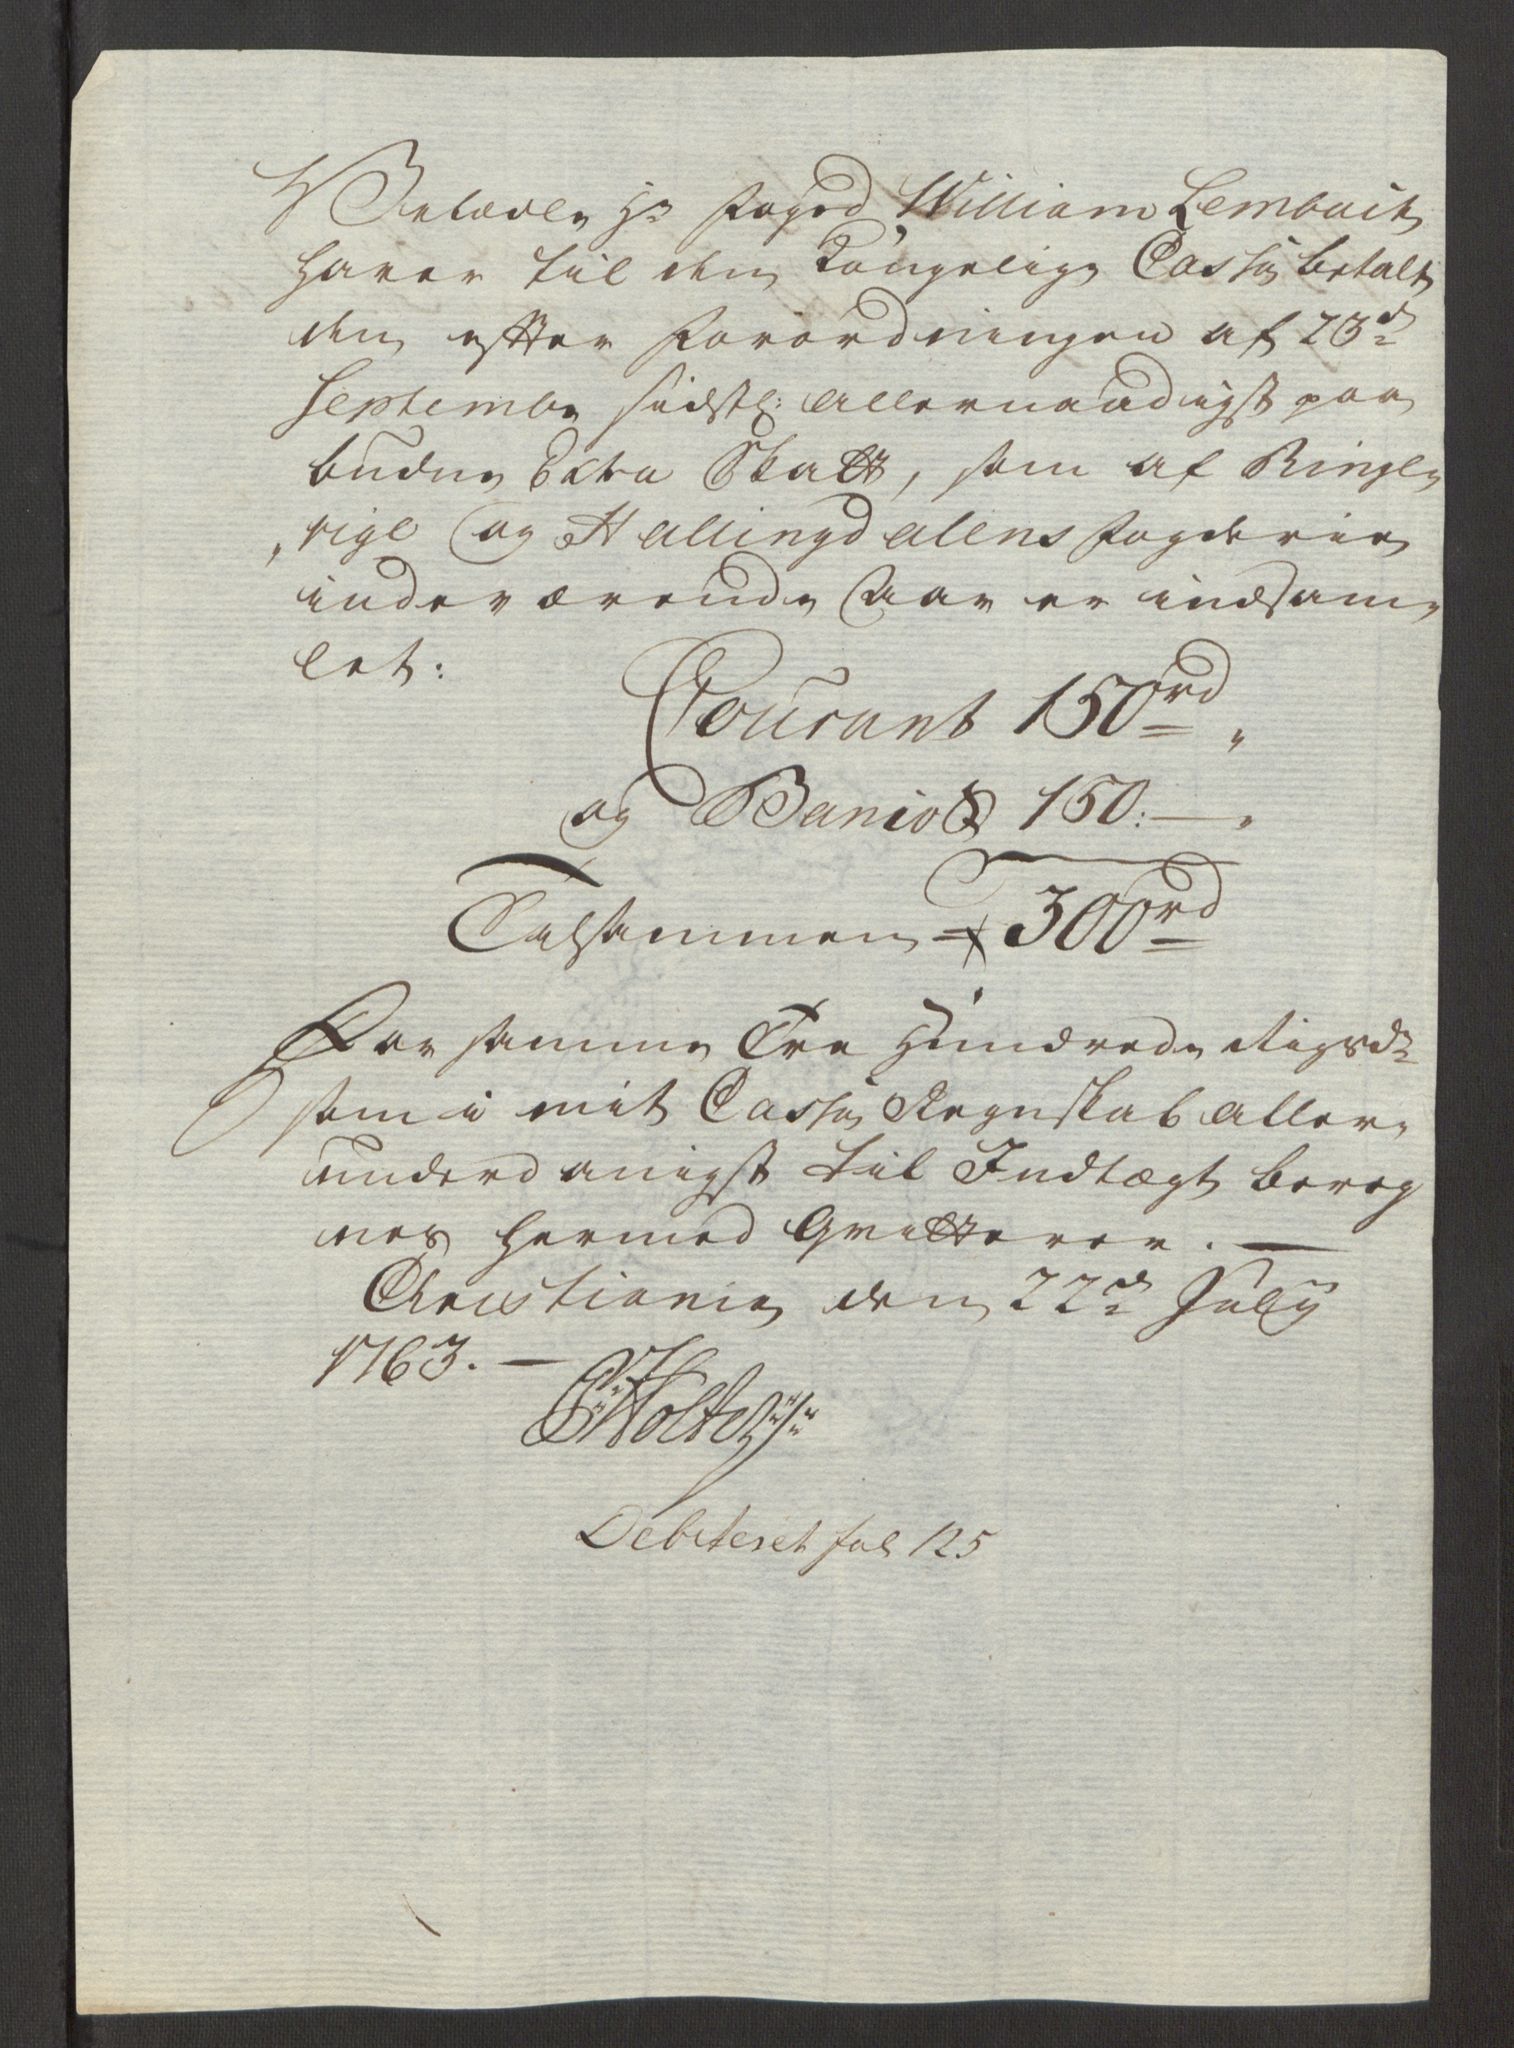 Velædle Hr Foged William Lembach
haver til den Kongelige Cassa betalt
den efter Forordningen af 23d
Septembr sidstl: allernaadigst paa
budne Extra Skatt, som af Ringe
rige og Hallingdalens Fogderie
indeværende Aar er indsam
let:
Courant 150rd "
og Banco 150: — "
Tilsammen 300rd
For samme Tre Hundrede Rigsdr
som i mit Cassa Regnskab aller
underdanigst til Indtægt bereg
nes hermed Qvitterer. —
Christiania den 22d July
1763. —
Holte
Debiteret fol 125